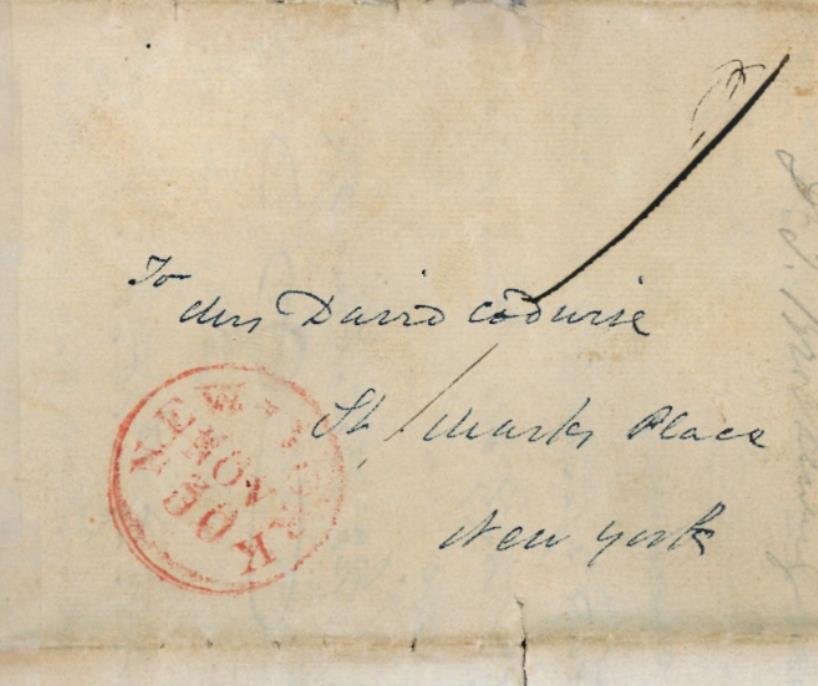 To
Mrs David Codwise
St. Marks Place
New York
NEW-YORK
NOV
30